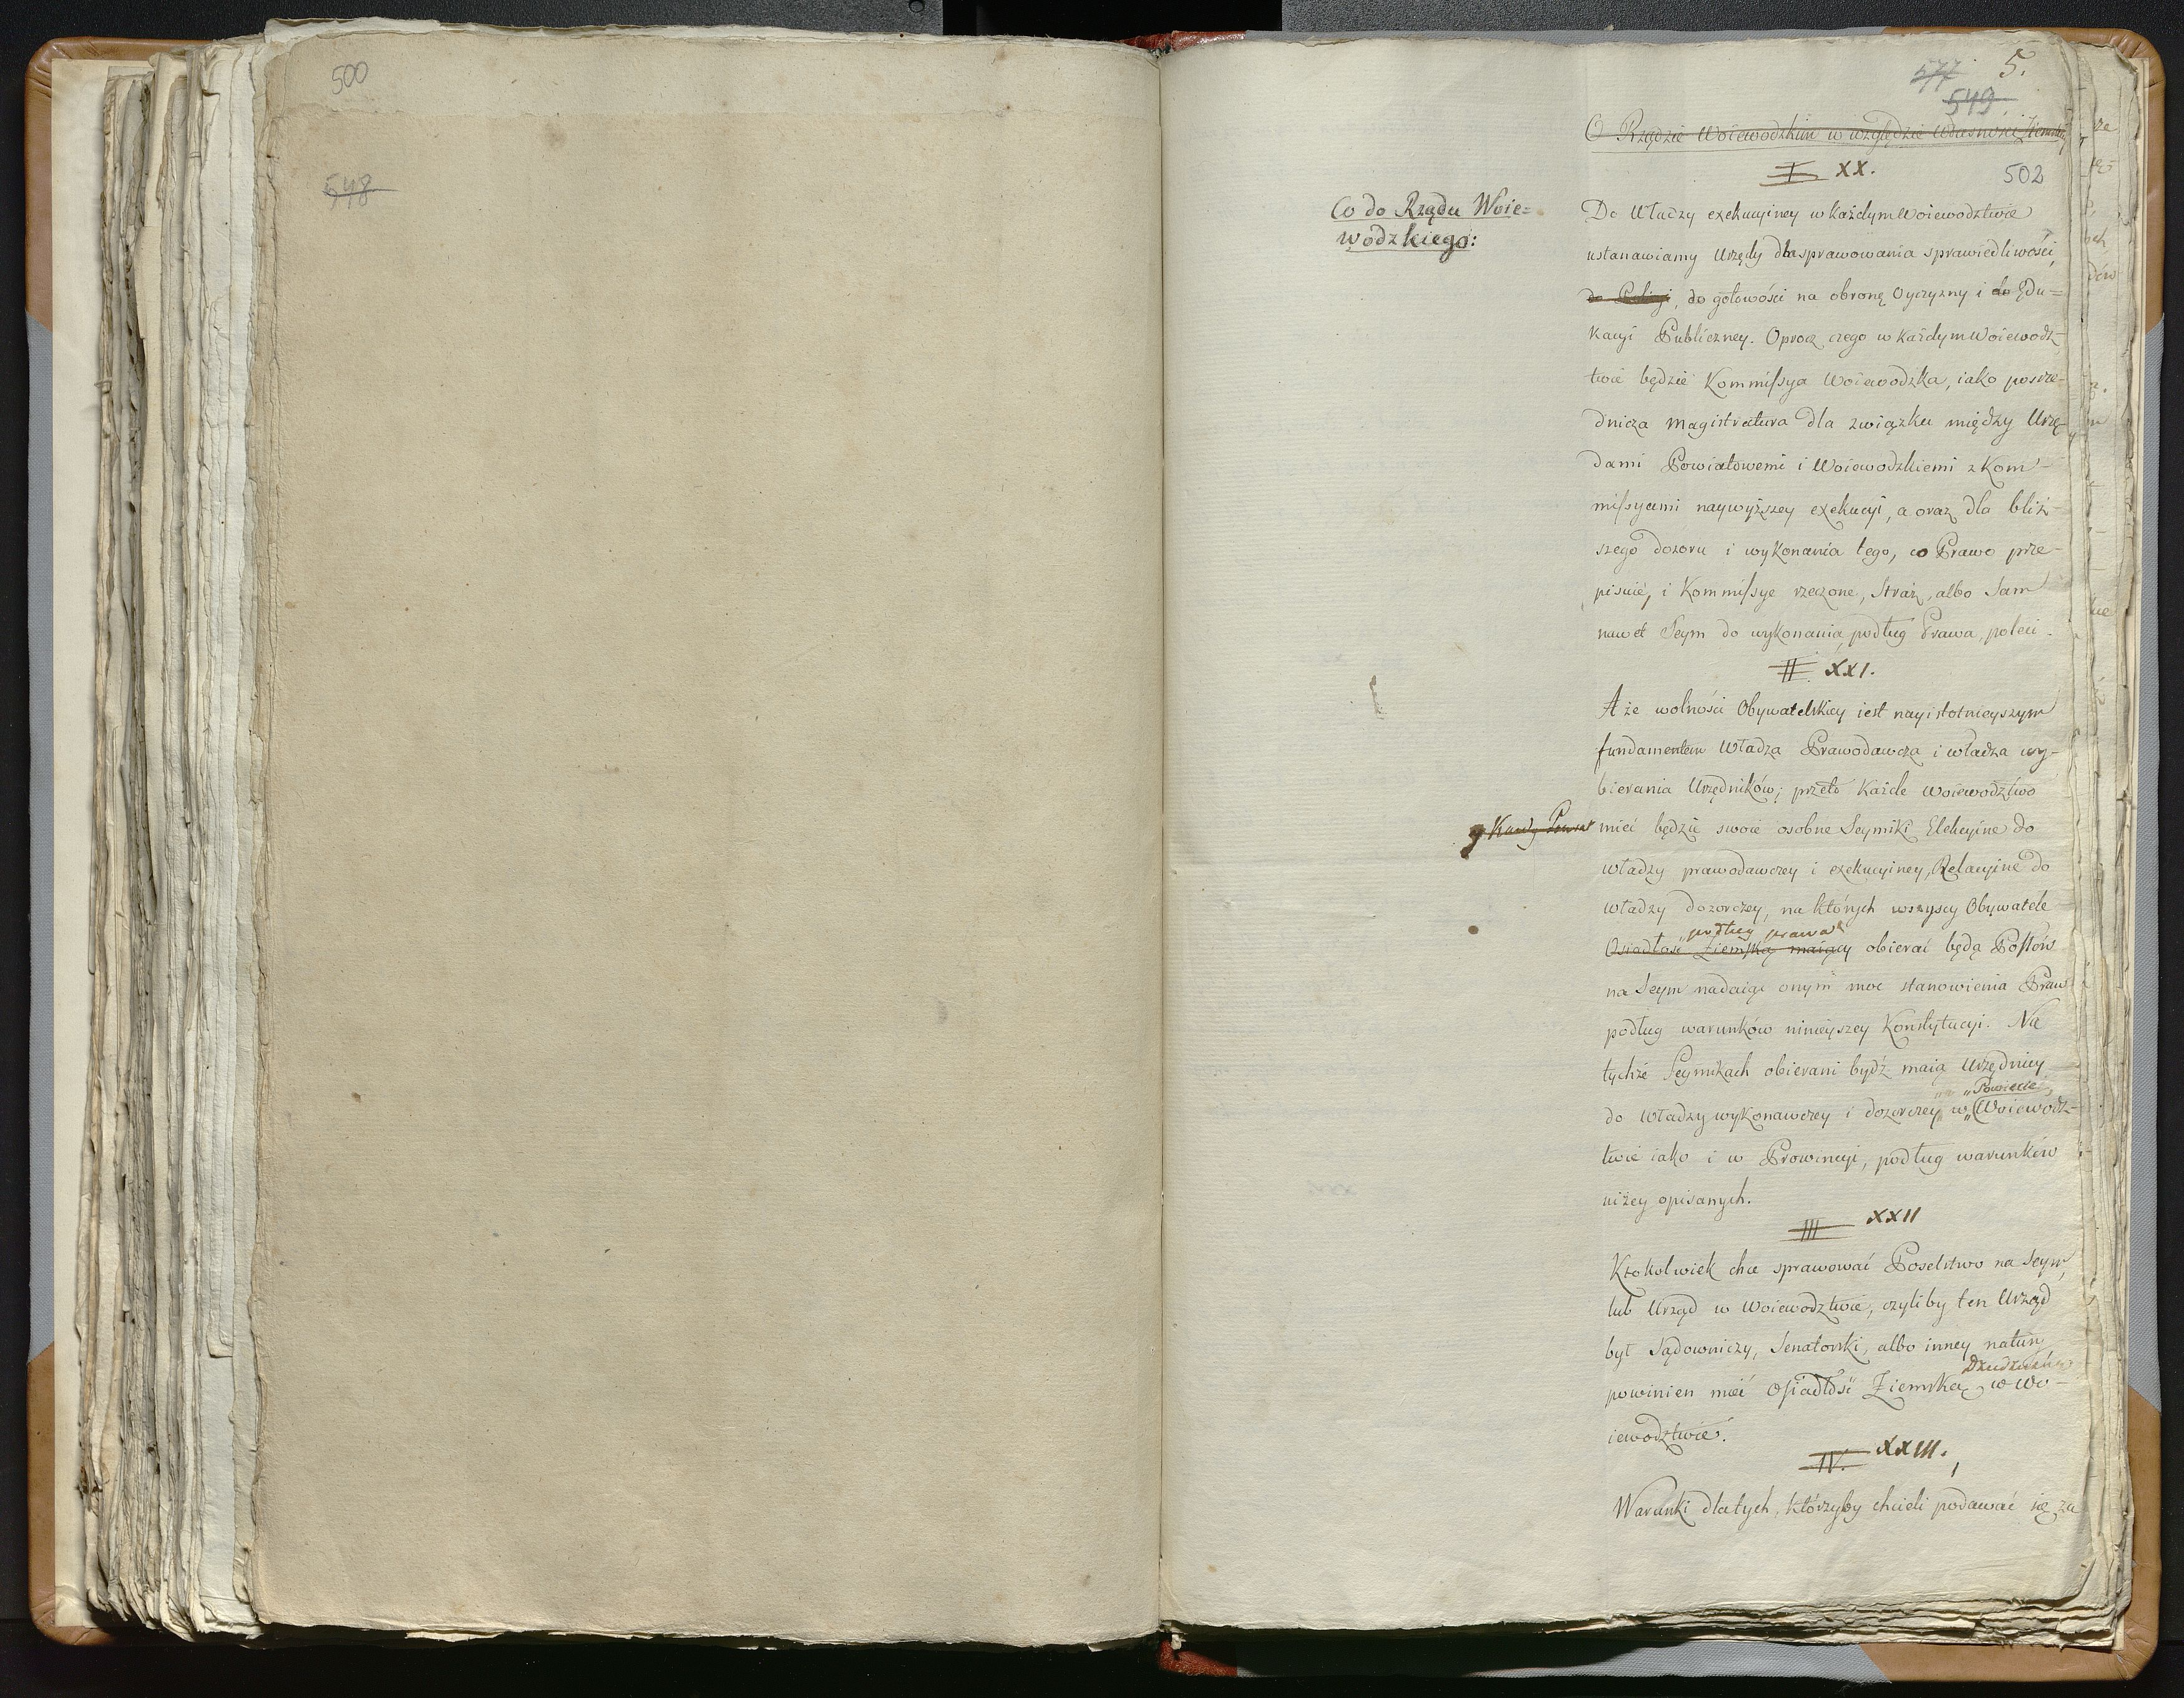 500
548
577 5.
549.
O Rządzie Woiewodzkim w względzie własności Ziemskiey
I XX.
502
Co do Rządu Woie=
wodzkiego:
Do Władzy exekucyiney w każdym Woiewodztwie
ustanawiamy Urzędy dla sprawowania sprawiedliwości,
do Policyi, do gotowości na obronę Oyczyzny i do Edu=
kacyi Publiczney. Oprocz czego w każdym Woiewodz-
twie będzie Kommissya Woiewodzka, iako posrze-
dnicza Magistratura dla związku między Urzę-
dami Powiatowemi i Woiewodzkiemi z Kom-
missyami naywyższey exekucyi, a oraz dla bliż-
szego dozoru i wykonania tego, co Prawo prze-
pisuie, i Kommissye rzeczone, Straż, albo Sam
nawet Seym do wykonania podług Prawa, poleci.
II XXI.
A że wolności Obywatelskiey iest nayistotnieyszym
fundamentem Władza Prawodawcza i władza wy-
bierania Urzędników; przeto każde Woiewodztwo
y Każdy Powiat
mieć będzie swoie osobne Seymiki Elekcyine do
władzy prawodawczey i exekucyiney, Relacyine do
władzy dozorczey, na których wszyscy Obywatele
"podług prawa"
Osiadłość Ziemską maiący obierać będą Posłów
na Seym nadaiąc onym moc stanowienia Praw
podług warunków ninieyszey Konstytucyi. Na
tychże Seymikach obierani bydź maią Urzędnicy
"Powiecie,
do władzy wykonawczey i dozorczey w (Woiewodz-
twie iako i w Prowincyi, podług warunków
niżey opisanych.
III XXII
Ktokolwiek chce sprawować Poselstwo na Seym,
lub Urząd w Woiewodztwie, czyliby ten Urząd
był Sądowniczy, Senatorski, albo inney natury
powinien mieć Osiadłość Ziemską w Wo-
iewodztwie.
IV. XXIII.
Warunki dla tych, którzyby chcieli podawać się za